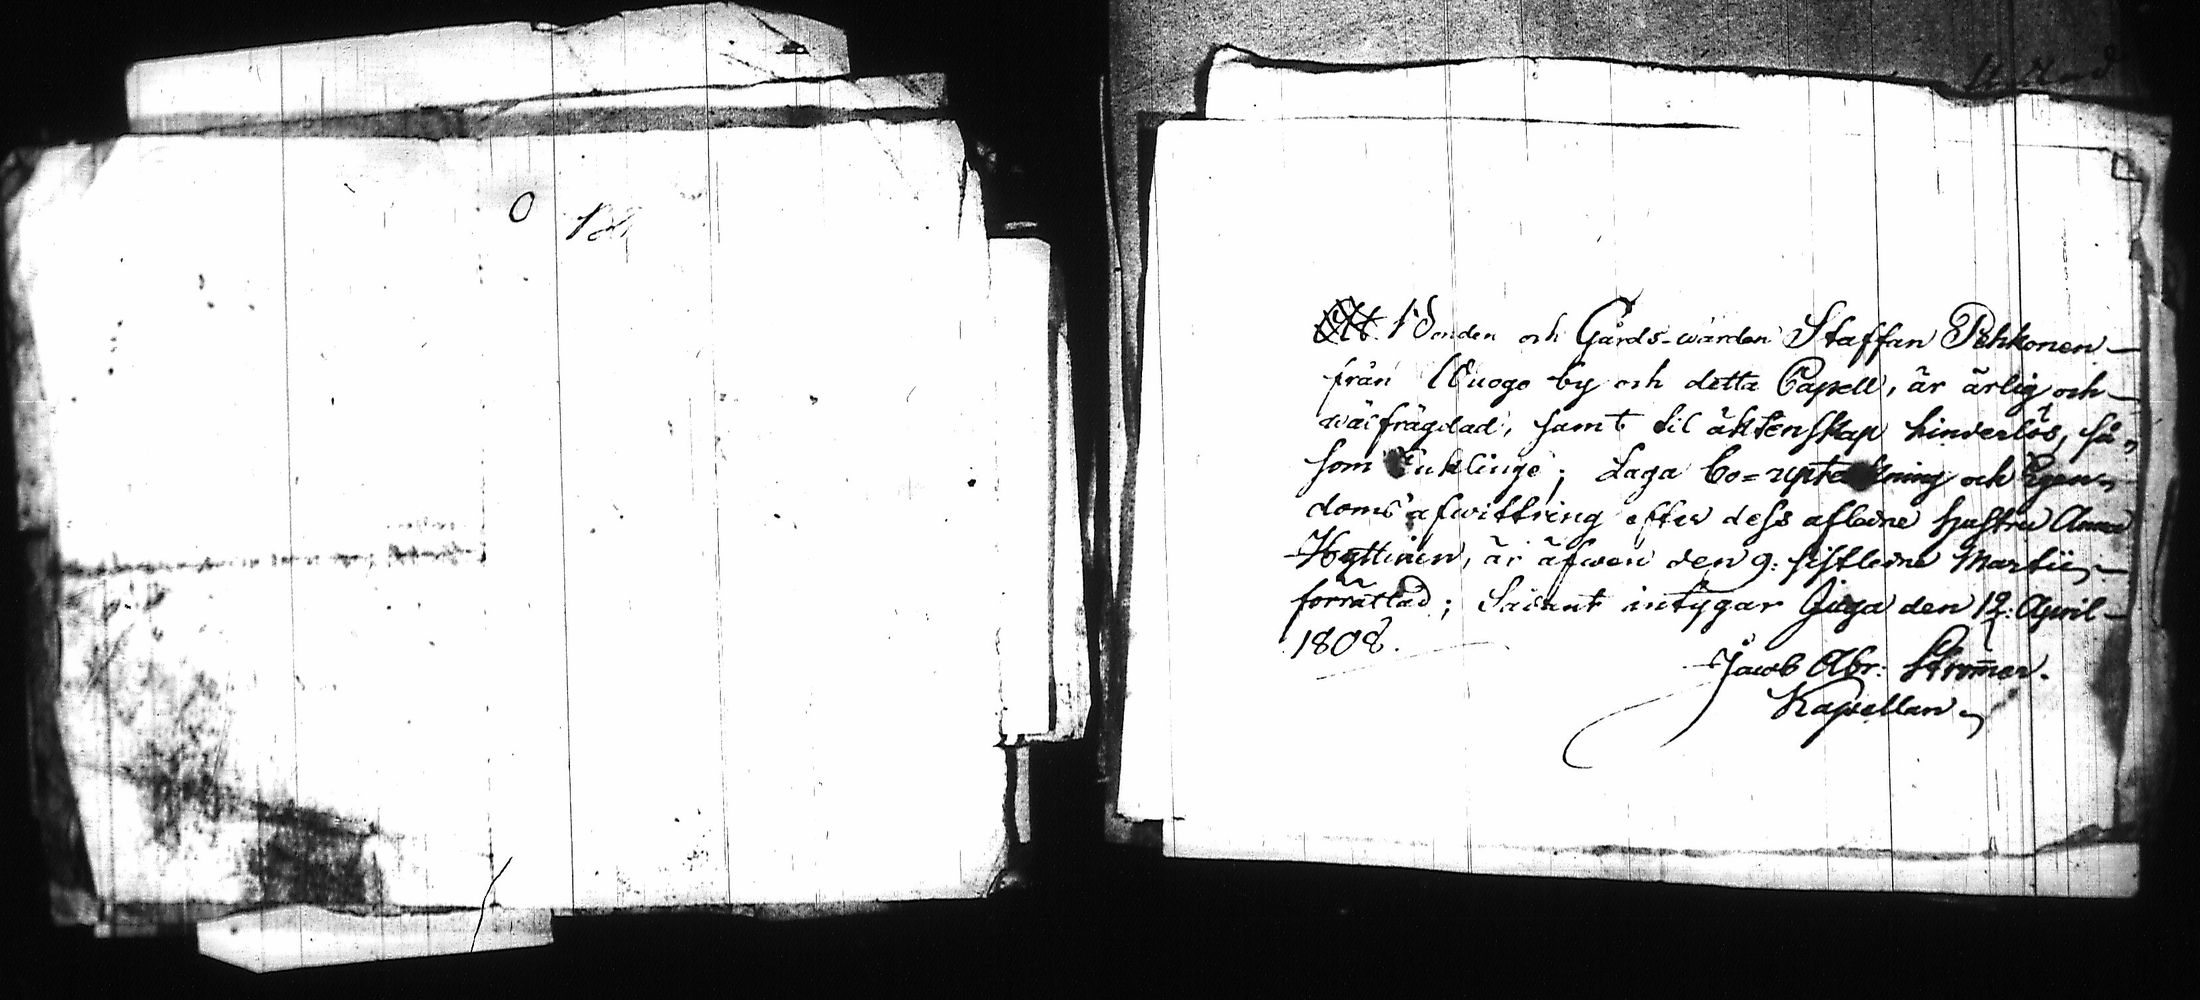 Bonden och Gårds-wärden Staffan Pehkonen
från Wuogo by och detta Capell, är ärlig och
wälfrägdad, samt til äktenskap hinderlös, så-
som Enklinge; Laga Bo=upteckning och Egen-
doms afwittring efter dess aflidne hustru Anna
Hyttinen, är äfwen den 9: sistledne Martii
förrättad; Sådant intygar Juga den 12: April
1808.
Jacob Abr: Stromer.
Kapellan